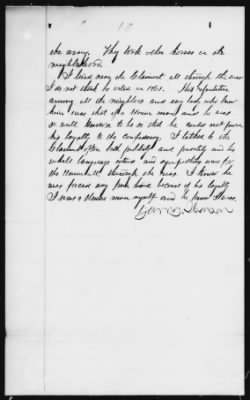 the army. They took other horses in the
neighborhood.
I lived near the Claimant all through the war
I do not think he voted in 1861. His reputation
among all the neighbors and any body who knew
him was that of a Union man, and he was
so well known to be so that he could not prove
his loyalty to the confederacy. I talked to the
Claimant often both publicly and privately and his
whole language and sympathies were for
the Union all through the war. I know he
was from home because of his loyalty
I was a Union man myself and he knew it